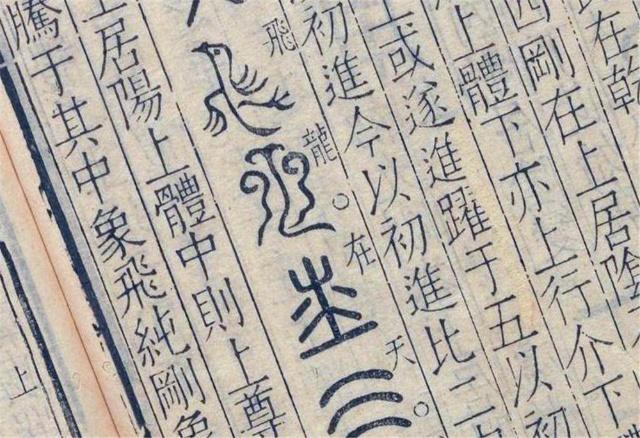 在乾
四剛在上居陰
上體下亦上行介下
上或遂進躍于五以初
初進今以初進比二
飛龍在天
上居陽上體中則上尊
騰于其中象飛純剛象
上